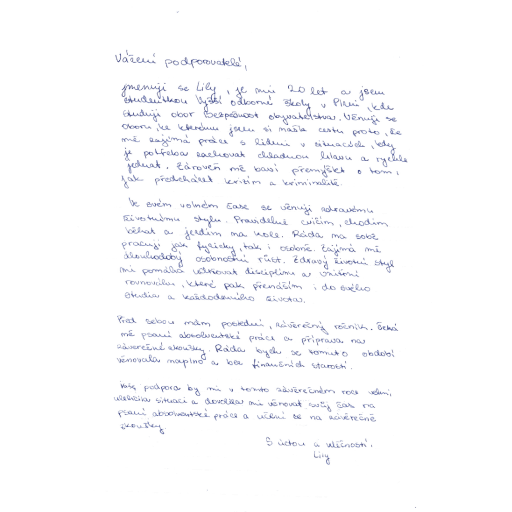 Vážení podporovatelé,
jmenuji se Lily, je mi 20 let a jsem
studentkou Vyšší odborné školy v Plzni, kde
studuji obor Bezpečnost obyvatelstva. Věnuji se
oboru, ke kterému jsem si našla cestu proto, že
mě zajímá práce s lidmi v situacích, kdy
je potřeba zachovat chladnou hlavu a rychle
jednat. Zároveň mě baví přemýšlet o tom,
jak předcházet krizím a kriminalitě.
Ve svém volném čase se věnuji zdravému
životnímu stylu. Pravidelně cvičím, chodím
běhat a jezdím na kole. Ráda na sobě
pracuji jak fyzicky, tak i osobně. Zajímá mě
dlouhodobý osobnostní růst. Zdravý životní styl
mi pomáhá udržovat disciplínu a vnitřní
rovnováhu, které pak přenáším i do svého
studia a každodenního života.
Před sebou mám poslední, závěrečný ročník. Čeká
mě psaní absolventské práce a příprava na
závěrečné zkoušky. Ráda bych se tomuto období
věnovala naplno a bez finančních starostí.
Vaše podpora by mi v tomto závěrečném roce velmi
ulehčila situaci a dovolila mi věnovat svůj čas na
psaní absolventské práce a učení se na závěrečné
zkoušky.
S úctou a vděčností,
Lily